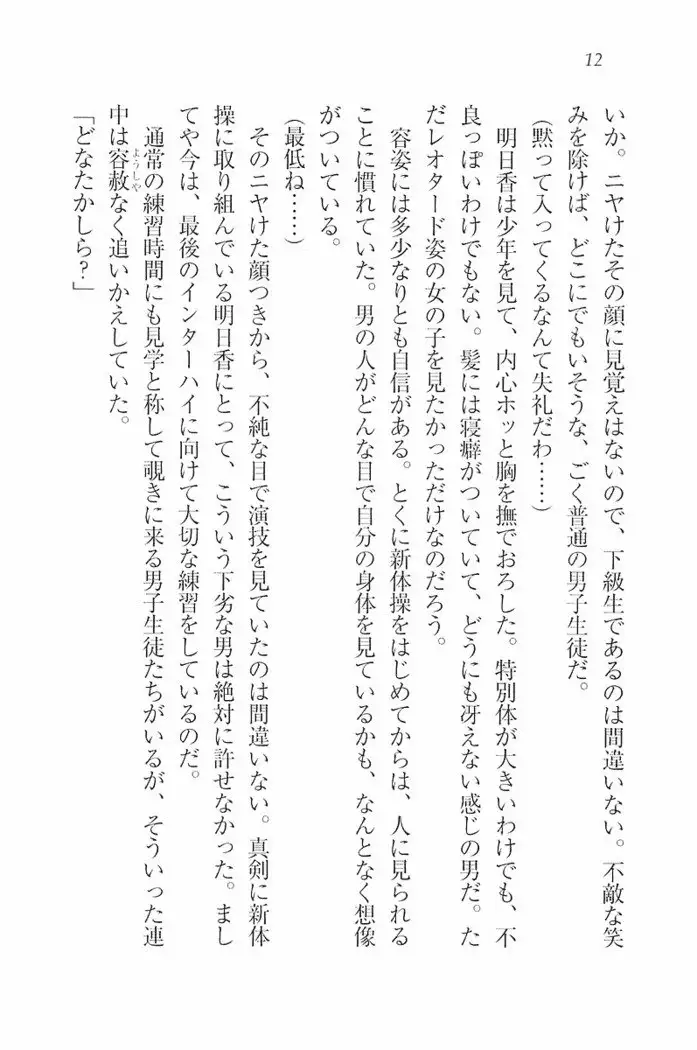 12
いか。ニヤけたその顔に見覚えはないので、下級生であるのは間違いない。不敵な笑
みを除けば、どこにでもいそうな、ごく普通の男子生徒だ。
（黙って入ってくるなんて失礼だわ……）
明日香は少年を見て、内心ホッと胸を撫でおろした。特別体が大きいわけでも、不
良っぽいわけでもない。髪には寝癖がついていて、どうにも冴えない感じの男だ。た
だレオタード姿の女の子を見たかっただけなのだろう。
容姿には多少なりとも自信がある。とくに新体操をはじめてからは、人に見られる
ことに慣れていた。男の人がどんな目で自分の身体を見ているかも、なんとなく想像
がついている。
（最低ね……）
そのニヤけた顔つきから、不純な目で演技を見ていたのは間違いない。真剣に新体
操に取り組んでいる明日香にとって、こういう下劣な男は絶対に許せなかった。まし
てや今は、最後のインターハイに向けて大切な練習をしているのだ。
通常の練習時間にも見学と称して覗きに来る男子生徒たちがいるが、そういった連
中は容赦なく追いかえしていた。
ようしや
「どなたかしら？」